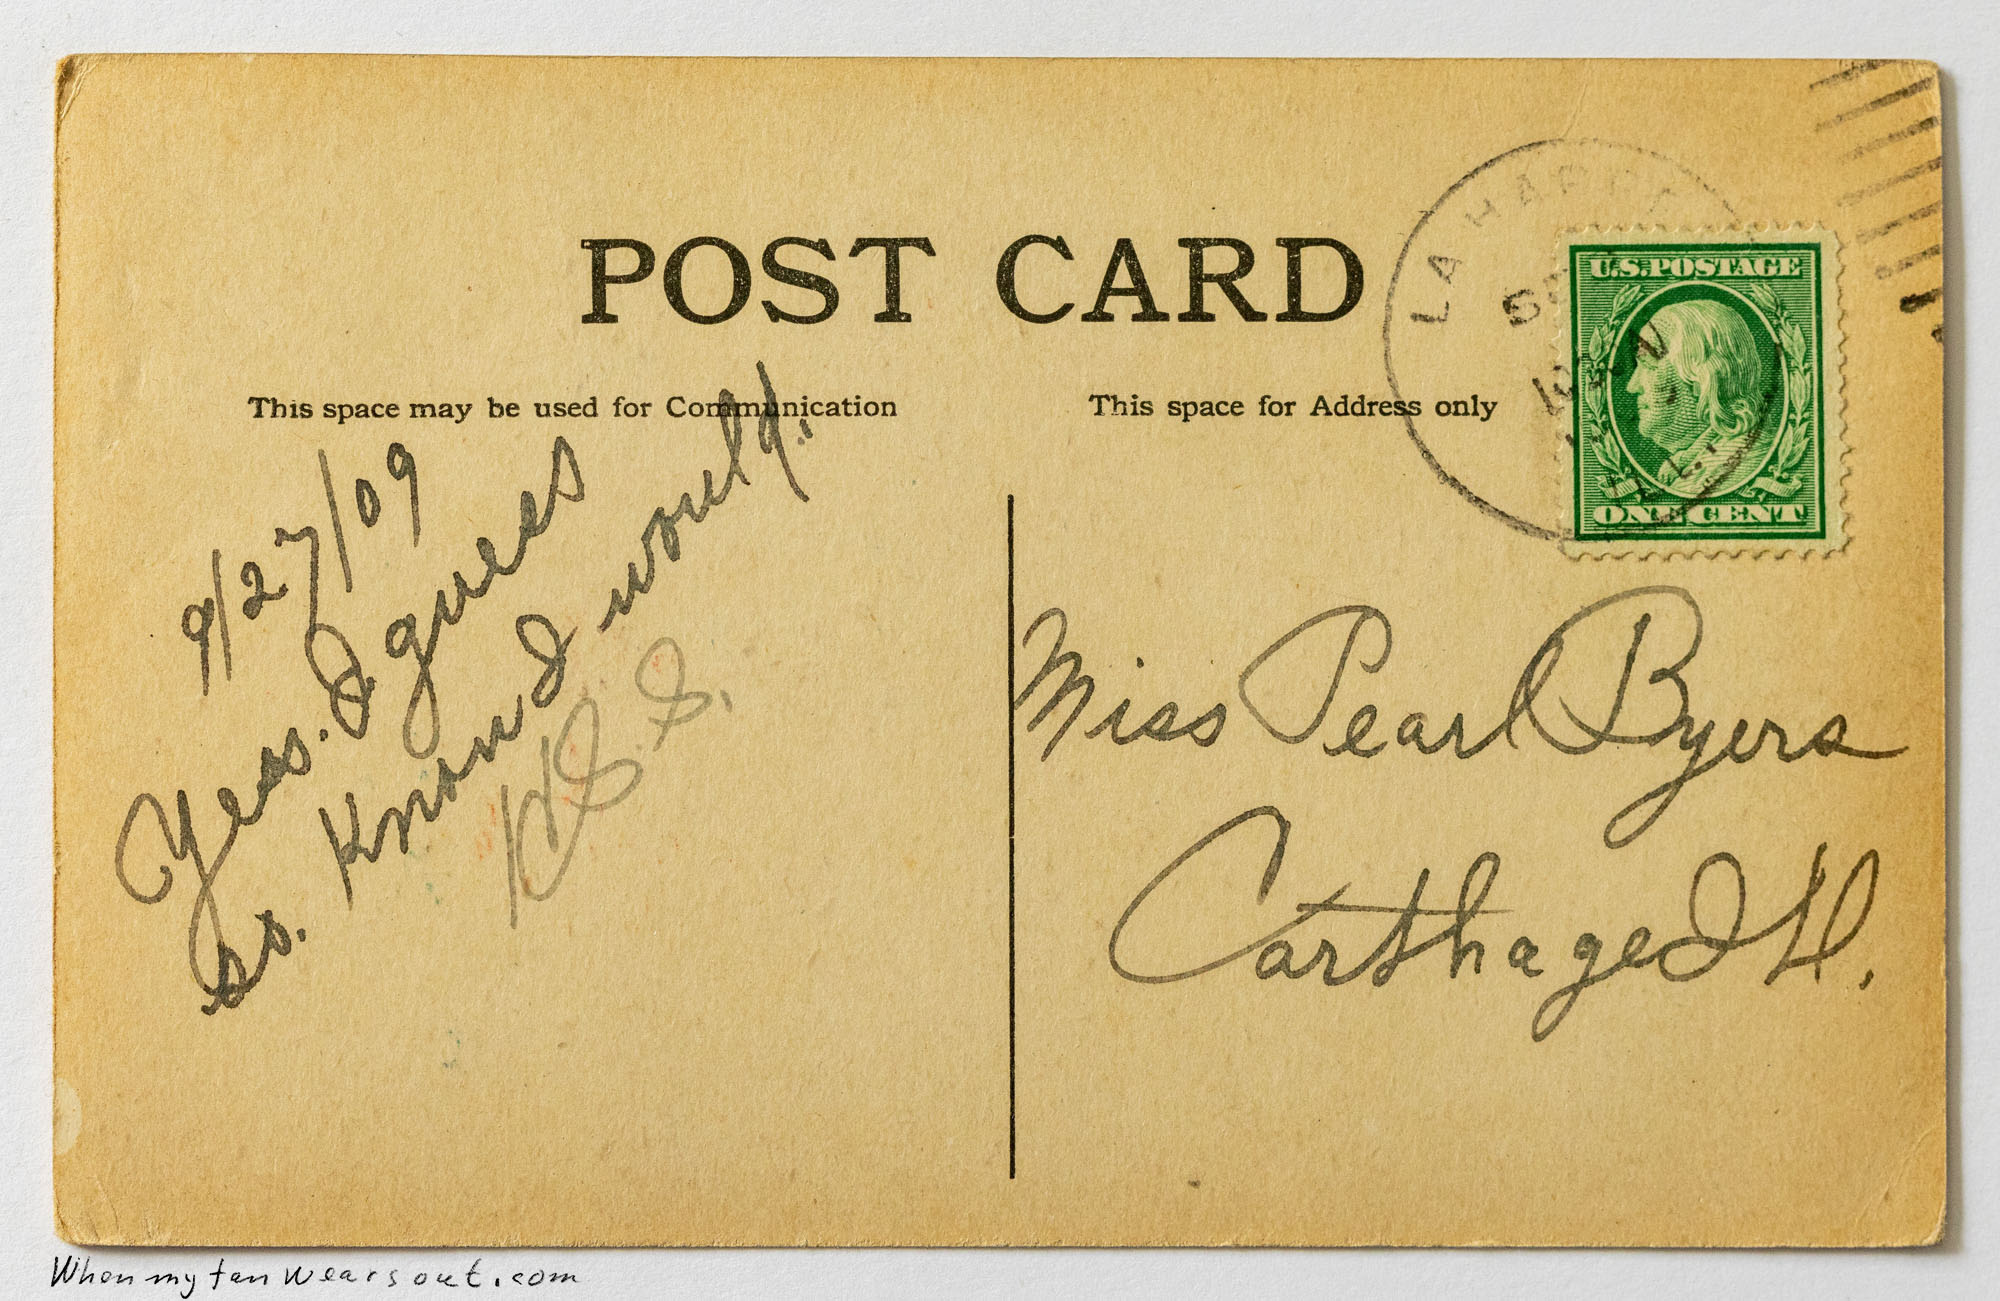 POST CARD
This space may be used for Communication
This space for Address only
LA HARPE
ILL.
U.S. POSTAGE
ONE CENT
9/27/09
Yes. I guess
so. Know I would.
Miss Pearl Byers
Carthage Ill.
When my tan wears out.com